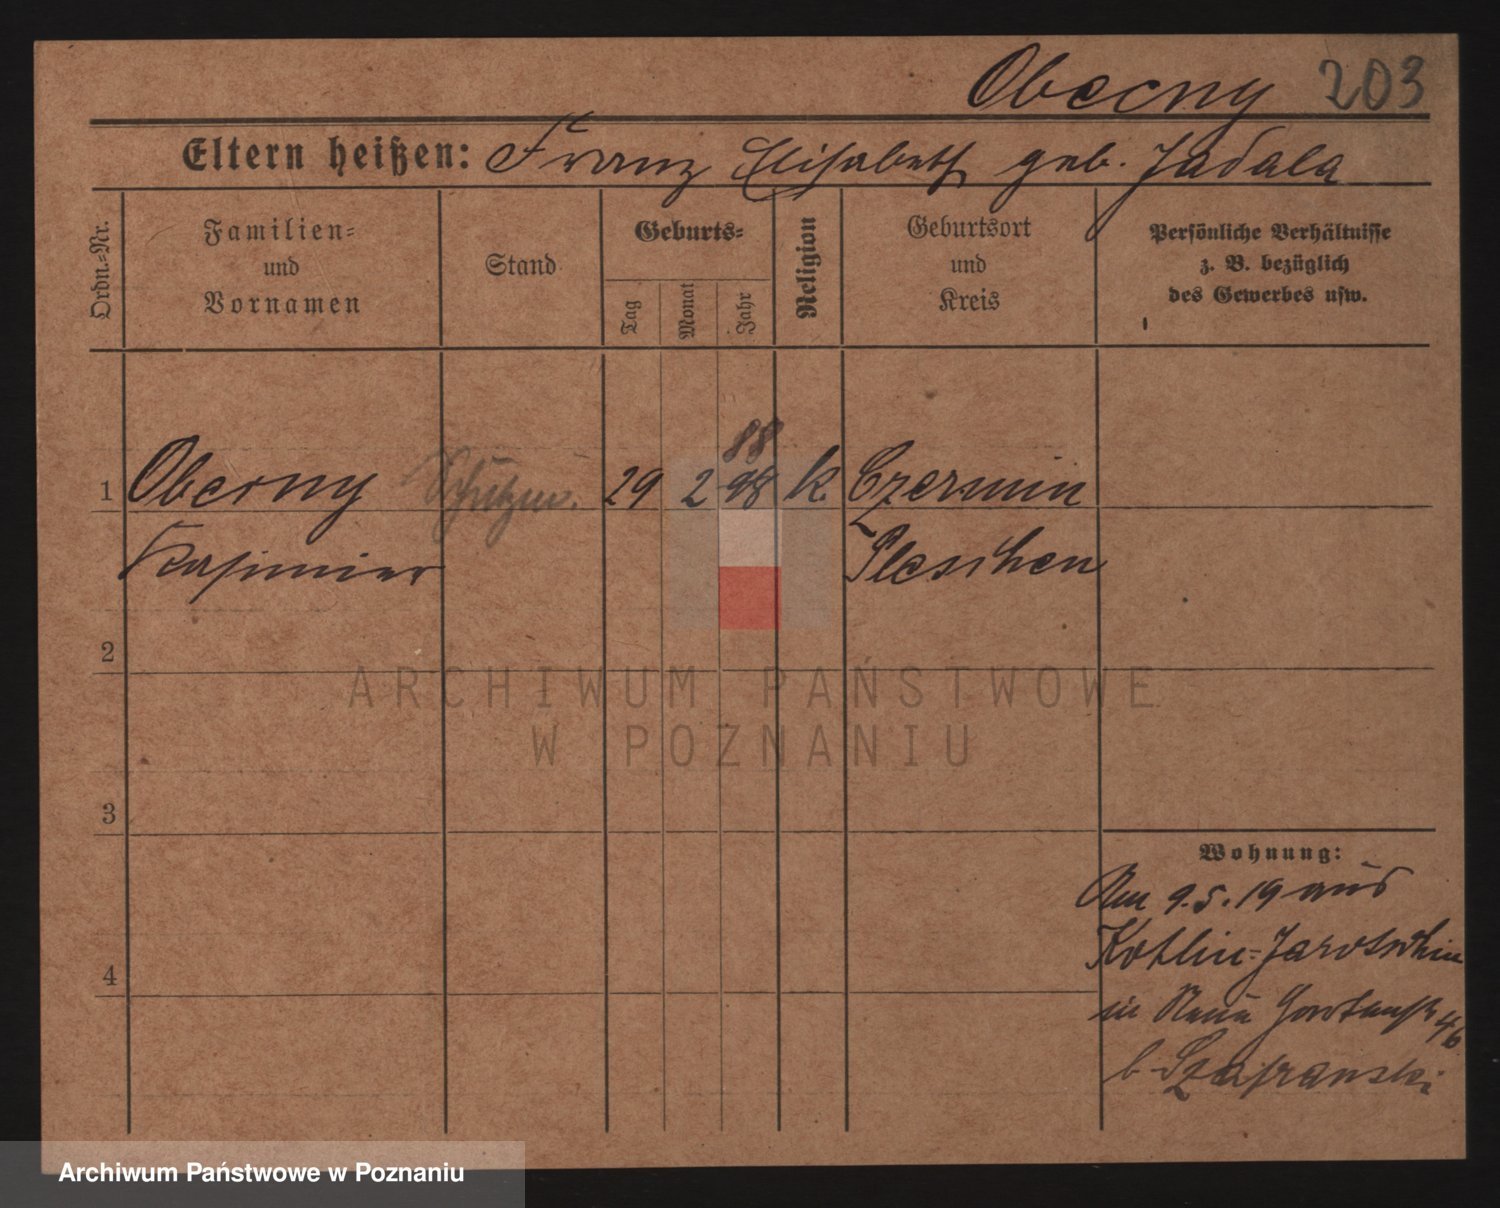 Obecny 203
Eltern heißen: Franz Elisabeth geb. Jadala
Ordn.-Nr.
Familien-
und
Vornamen
Stand
Geburts-
Tag
Monat
Jahr
Religion
Geburtsort
und
Kreis
Persönliche Verhältnisse
z. B. bezüglich
des Gewerbes usw.
88
1 Obecny 29 2 98 k. Czermin
Kasimier Pleschen
2
ARCHIWUM PAŃSTWOWE
W POZNANIU
3
Wohnung:
Am 9.5.19 aus
Kotlin-Jarotschin
4
in Neue Gartenstr 46
b Szafranski
Archiwum Państwowe w Poznaniu